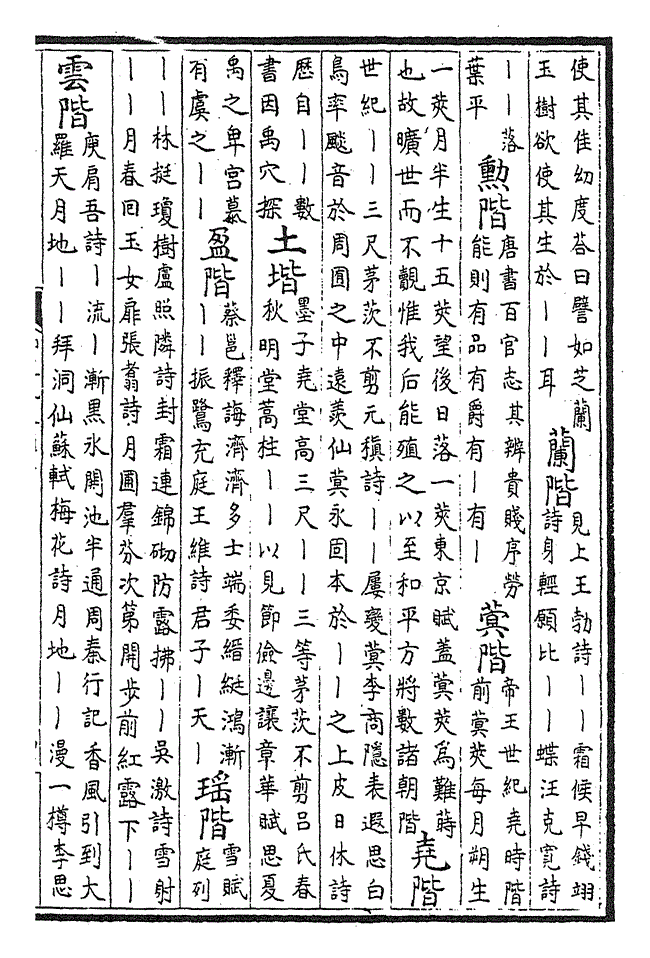 使其佳幼度荅曰譬如芝蘭
玉樹欲使其生於丨丨耳
蘭階
見上王勃詩丨丨霜候早錢翊
詩身輕願比丨丨蝶汪克寬詩
丨丨落
葉平
勲階
唐書百官志其辨貴賤序勞
能則有品有爵有丨有丨
蓂階
帝王世紀堯時階
前蓂莢每月朔生
一莢月半生十五莢望後日落一莢東京賦蓋蓂莢為難蒔
也故曠世而不覿惟我后能殖之以至和平方將數諸朝階
堯階
世紀丨丨三尺茅茨不剪元稹詩丨丨屢變蓂李商隱表遐思白
鳥率颺音於周囿之中遠羨仙蓂永固本於丨丨之上皮日休詩
歷自丨丨數
書因禹穴探
土堦
墨子堯堂高三尺丨丨三等茅茨不剪吕氏春
秋明堂蒿柱丨丨以見節儉邊讓章華賦思夏
禹之卑宫慕
有虞之丨丨
盈階
蔡邕釋誨濟濟多士端委縉綎鴻漸
丨丨振鷺充庭王維詩君子丨天丨
瑶階
雪賦
庭列
丨丨林挺瓊樹盧照隣詩封霜連錦砌防露拂丨丨吳激詩雪射
丨丨月春回玉女扉張翥詩月圃羣芬次第開步前紅露下丨丨
雲階
庾肩吾詩丨流丨漸黒氷開池半通周秦行記香風引到大
羅天月地丨丨拜洞仙蘇軾梅花詩月地丨丨漫一樽李思